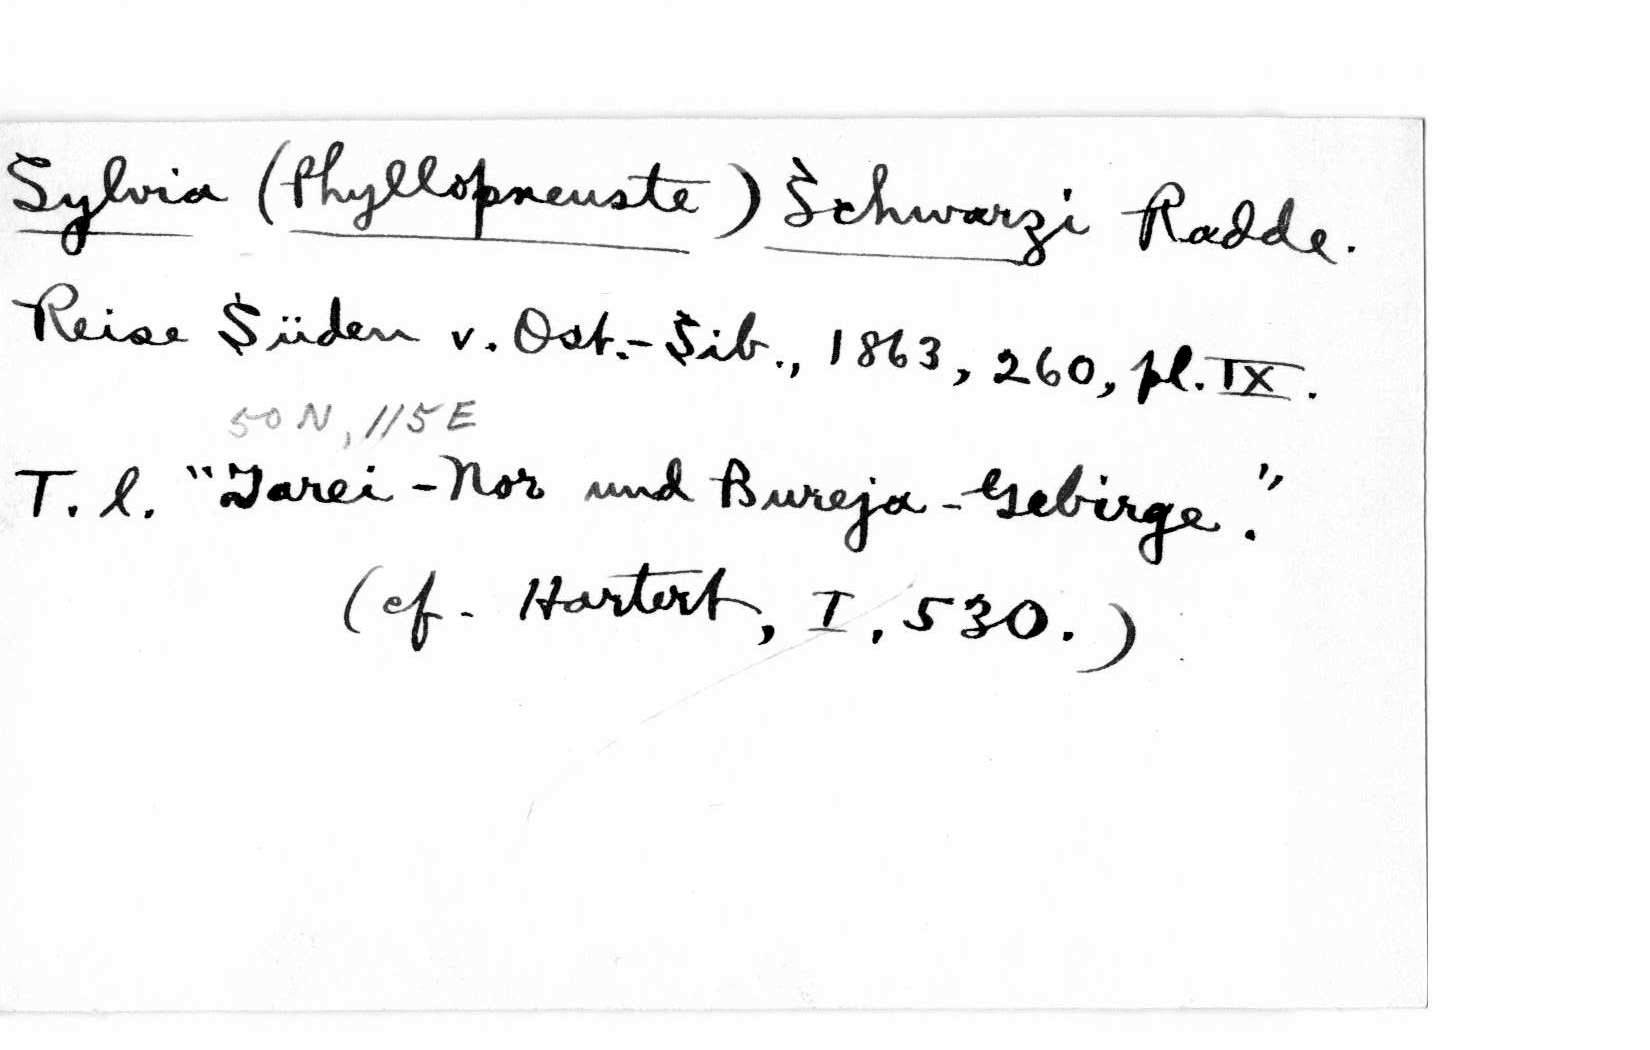 Sylvia (Phyllopneuste) Schwarzi Radde.
Reise Süden v. Ost.-Sib., 1863, 260, pl. IX.
50 N, 115 E
T. l. "Tarei-Nor und Bureja-Gebirge."
(cf. Hartert, I, 530.)